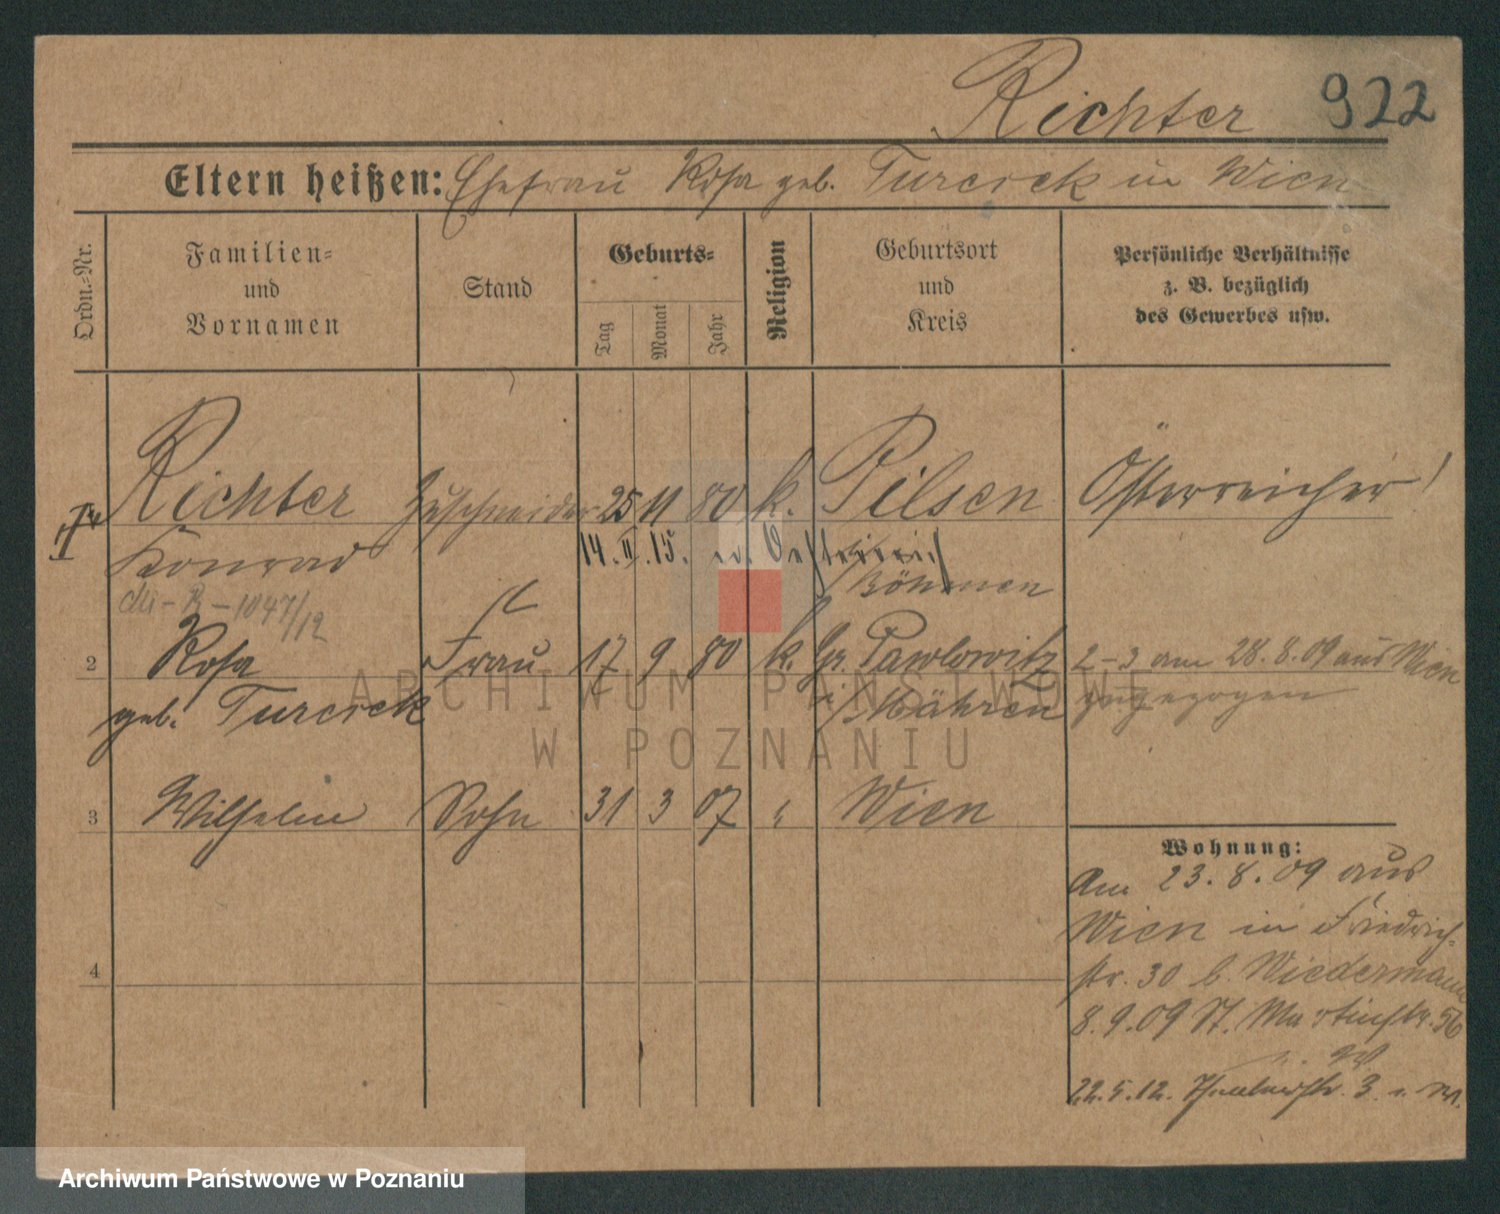 Richter 922
Eltern heißen: Ehefrau Rosa geb. Turcick in Wien
Ordn.-Nr.
Familien-
und
Vornamen
Stand
Geburts-
Tag
Monat
Jahr
Religion
Geburtsort
und
Kreis
Persönliche Verhältnisse
z. B. bezüglich
des Gewerbes usw.
Richter Zuschneider 25 11 80 k. Pilsen Österreicher!
Konrad 14. II. 15. Oesterreich
Böhmen
R - 1047/12
2 Rosa Frau 17 9 80 k. Gr. Pawlowitz 2-3 am 28.8.09 aus Wien
geb. Turcick i/Mähren zugezogen
3 Wilhelm Sohn 31 3 07 " Wien
Wohnung:
Am 23.8.09 aus
Wien in Friedrich-
str. 30 b. Wiedermann
8.9.09 St. Martinstr. 56
4
22.5.12. 3
ARCHIWUM PAŃSTWOWE
W POZNANIU
Archiwum Państwowe w Poznaniu